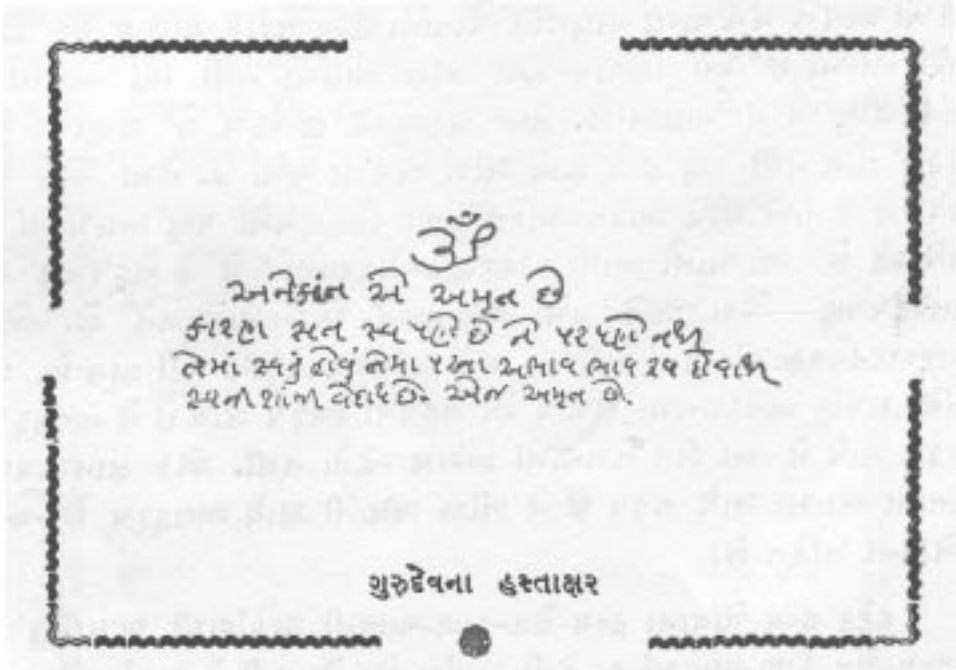 ૐ
અનેકાંત એ અમૃત છે
કારણ સત સ્વ પણે છે ને પર પણે નથી
તેમાં સ્વનું હોવું તેમા પરના અભાવ ભાવ રૂપ હોવાથી
સ્વની શાંતી વેદાય છે. એજ અમૃત છે.
ગુરુદેવના હસ્તાક્ષર